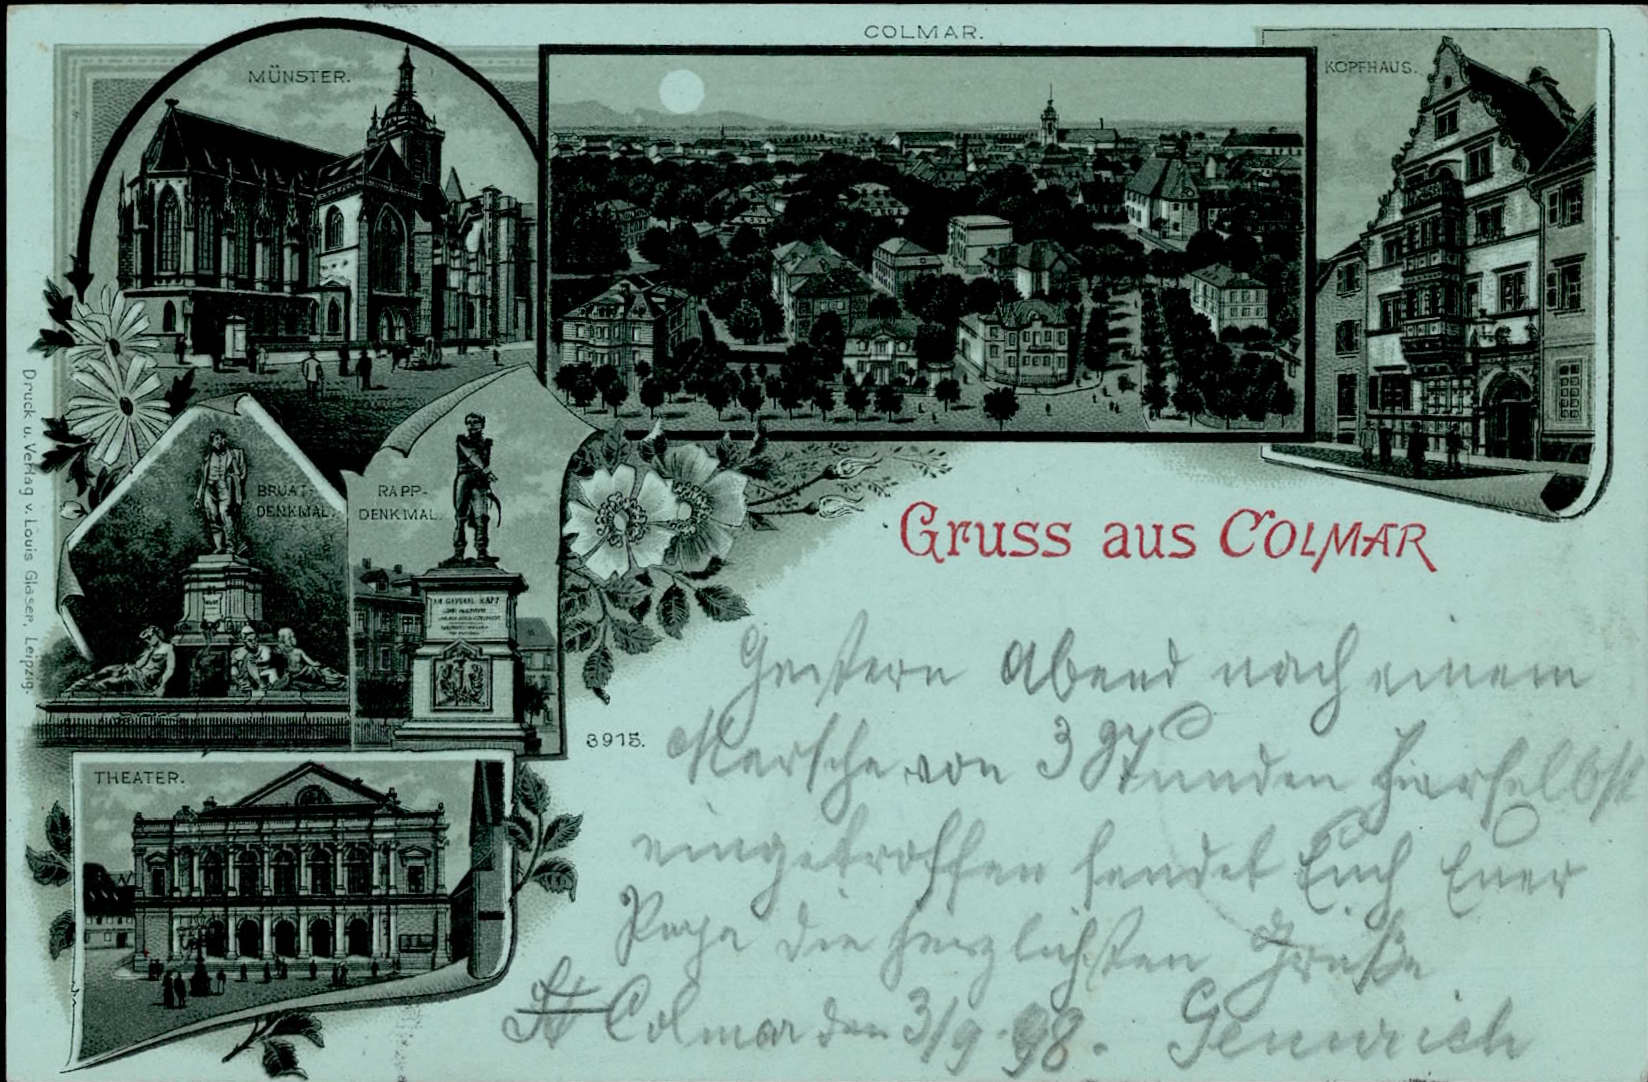 COLMAR.
MÜNSTER.
KOPFHAUS.
BRUAT-
DENKMAL.
RAPP-
DENKMAL.
THEATER.
3915.
Druck u. Verlag v. Louis Glaser, Leipzig.
Gruss aus COLMAR
Gestern Abend nach einem
Marsche von 3 Stunden hierselbst
eingetroffen sendet Euch Euer
Papa die herzlichsten Grüße
Colmar den 3/9.98.